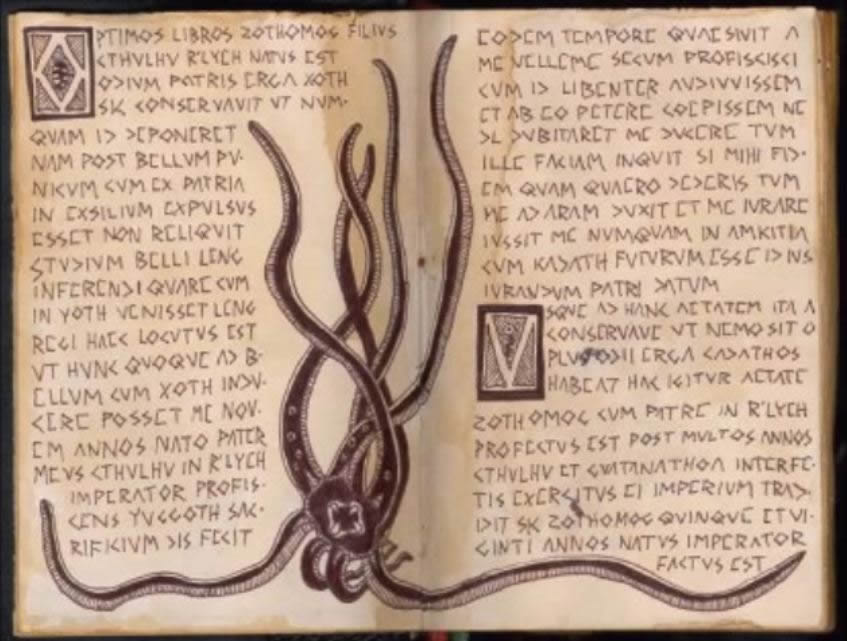 OPTIMOS LIBROS ZOTHOMOG FILIVS
CTHVLHV R'LYEH NATVS EST
ODIVM PATRIS ERGA XOTH
SIC CONSERVAVIT VT NVM-
QVAM ID DEPONERET
NAM POST BELLVM PV-
NICVM CVM EX PATRIA
IN EXSILIVM EXPVLSVS
ESSET NON RELIQVIT
STVDIVM BELLI LENG
INFERENDI QVARE CVM
IN YOTH VENISSET LENG
REGI HAEC LOCVTVS EST
VT HVNC QVOQVE AD B-
ELLVM CVM XOTH INDV-
CERE POSSET ME NOV-
EM ANNOS NATO PATER
MEVS CTHVLHV IN R'LYEH
IMPERATOR PROFIS-
CENS YVGGOTH SAC-
RIFICIVM DIS FECIT
EODEM TEMPORE QVAESIVIT A
ME VELLEME SECVM PROFISCISCI
CVM ID LIBENTER AVDIVVISSEM
ET AB EO PETERE COEPISSEM NE
DVBITARET ME DVCERE TVM
ILLE FACIAM INQVIT SI MIHI FID-
EM QVAM QVAERO DEDERIS TVM
ME AD ARAM DVXIT ET ME IVRARE
IVSSIT ME NVMQVAM IN AMICITIA
CVM KADATH FVTVRVM ESSE ID IVS
IVRANDVM PATRI DATVM
VSQVE AD HANC AETATEM ITA A
CONSERVAVE VT NEMO SIT O
ERGA CADATHOS
HABEAT HAC IGITVR AETATE
ZOTHOMOG CVM PATRE IN R'LYEH
PROFECTVS EST POST MVLTOS ANNOS
CTHVLHV ET GVATANATHOA INTERFE-
TIS EXERCITVS EI IMPERIVM TRAD-
IDIT SIC ZOTHOMOG QVINQVE ET VI-
GINTI ANNOS NATVS IMPERATOR
FACTVS EST